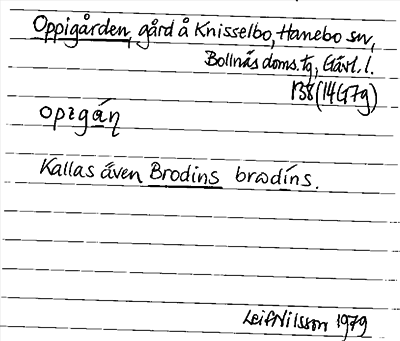 Oppigården, gård å Knisselbo, Hanebo sn,
Bollnäs doms. tg, Gävl. l.
138 (14G7g)
opɪgáṇ
Kallas även Brodins brωdíns.
Leif Nilsson 1979